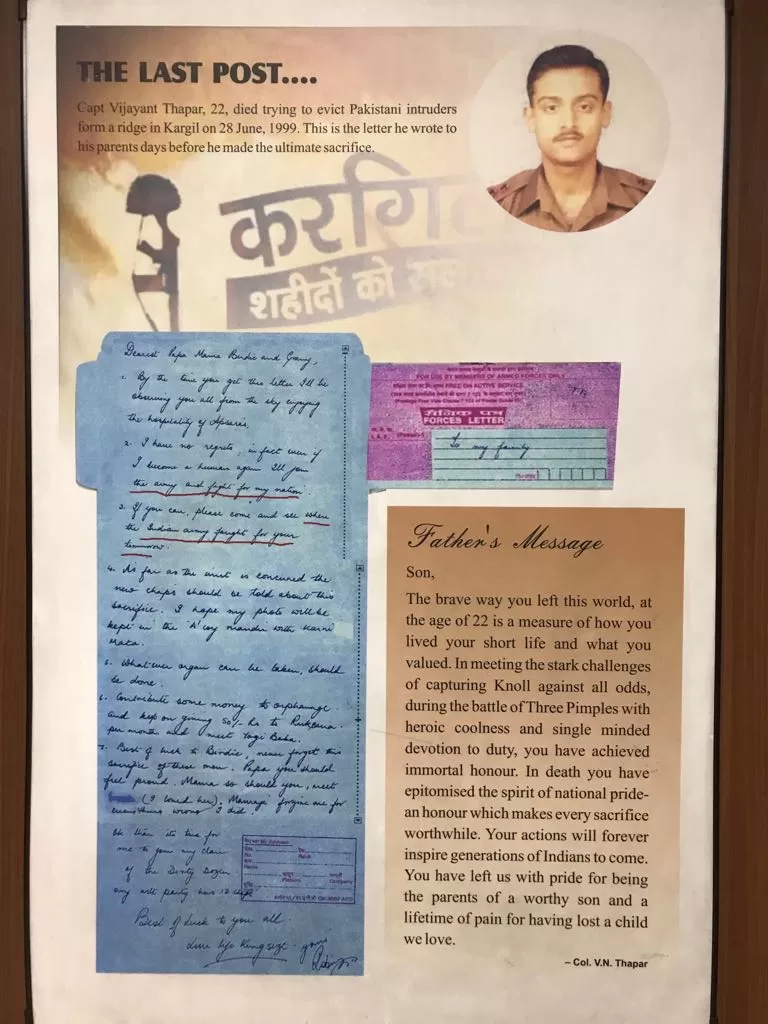 THE LAST POST....
Capt Vijayant Thapar, 22, died trying to evict Pakistani intruders
form a ridge in Kargil on 28 June, 1999. This is the letter he wrote to
his parents days before he made the ultimate sacrifice.
करगिल
शहीदों को सलाम
Dearest Papa Mama Birdie and Granny,
1. By the time you get this letter I'll be
observing you all from the sky enjoying
the hospitality of Apsaras.
2. I have no regrets, in fact even if
I become a human again I'll join
the army and fight for my nation.
3. If you can, please come and see where
the Indian army fought for your
tomorrow.
4. As far as the unit is concerned the
new chaps should be told about this
sacrifice. I hope my photo will be
kept in the 'A' coy mandir with Karni
Mata.
5. Whatever organ can be taken, should
be done.
6. Contribute some money to orphanage
and keep on giving 50/- Rs to Ruksana
per month and meet Yogi Baba.
7. Best of luck to Birdie, never forget this
sacrifice of these men. Papa you should
feel proud. Mama so should you, meet
(I loved her). Mamaji forgive me for
everything wrong I did.
Ok then its time for
me to join my clan
of the Dirty Dozen
my party has 12 chaps
Best of luck to you all
Live life Kingsize
yours
Robin
FOR USE BY MEMBERS OF ARMED FORCES ONLY
FREE ON ACTIVE SERVICE
सैनिक पत्र
FORCES LETTER
To my family
Father's Message
Son,
The brave way you left this world, at
the age of 22 is a measure of how you
lived your short life and what you
valued. In meeting the stark challenges
of capturing Knoll against all odds,
during the battle of Three Pimples with
heroic coolness and single minded
devotion to duty, you have achieved
immortal honour. In death you have
epitomised the spirit of national pride-
an honour which makes every sacrifice
worthwhile. Your actions will forever
inspire generations of Indians to come.
You have left us with pride for being
the parents of a worthy son and a
lifetime of pain for having lost a child
we love.
– Col. V.N. Thapar